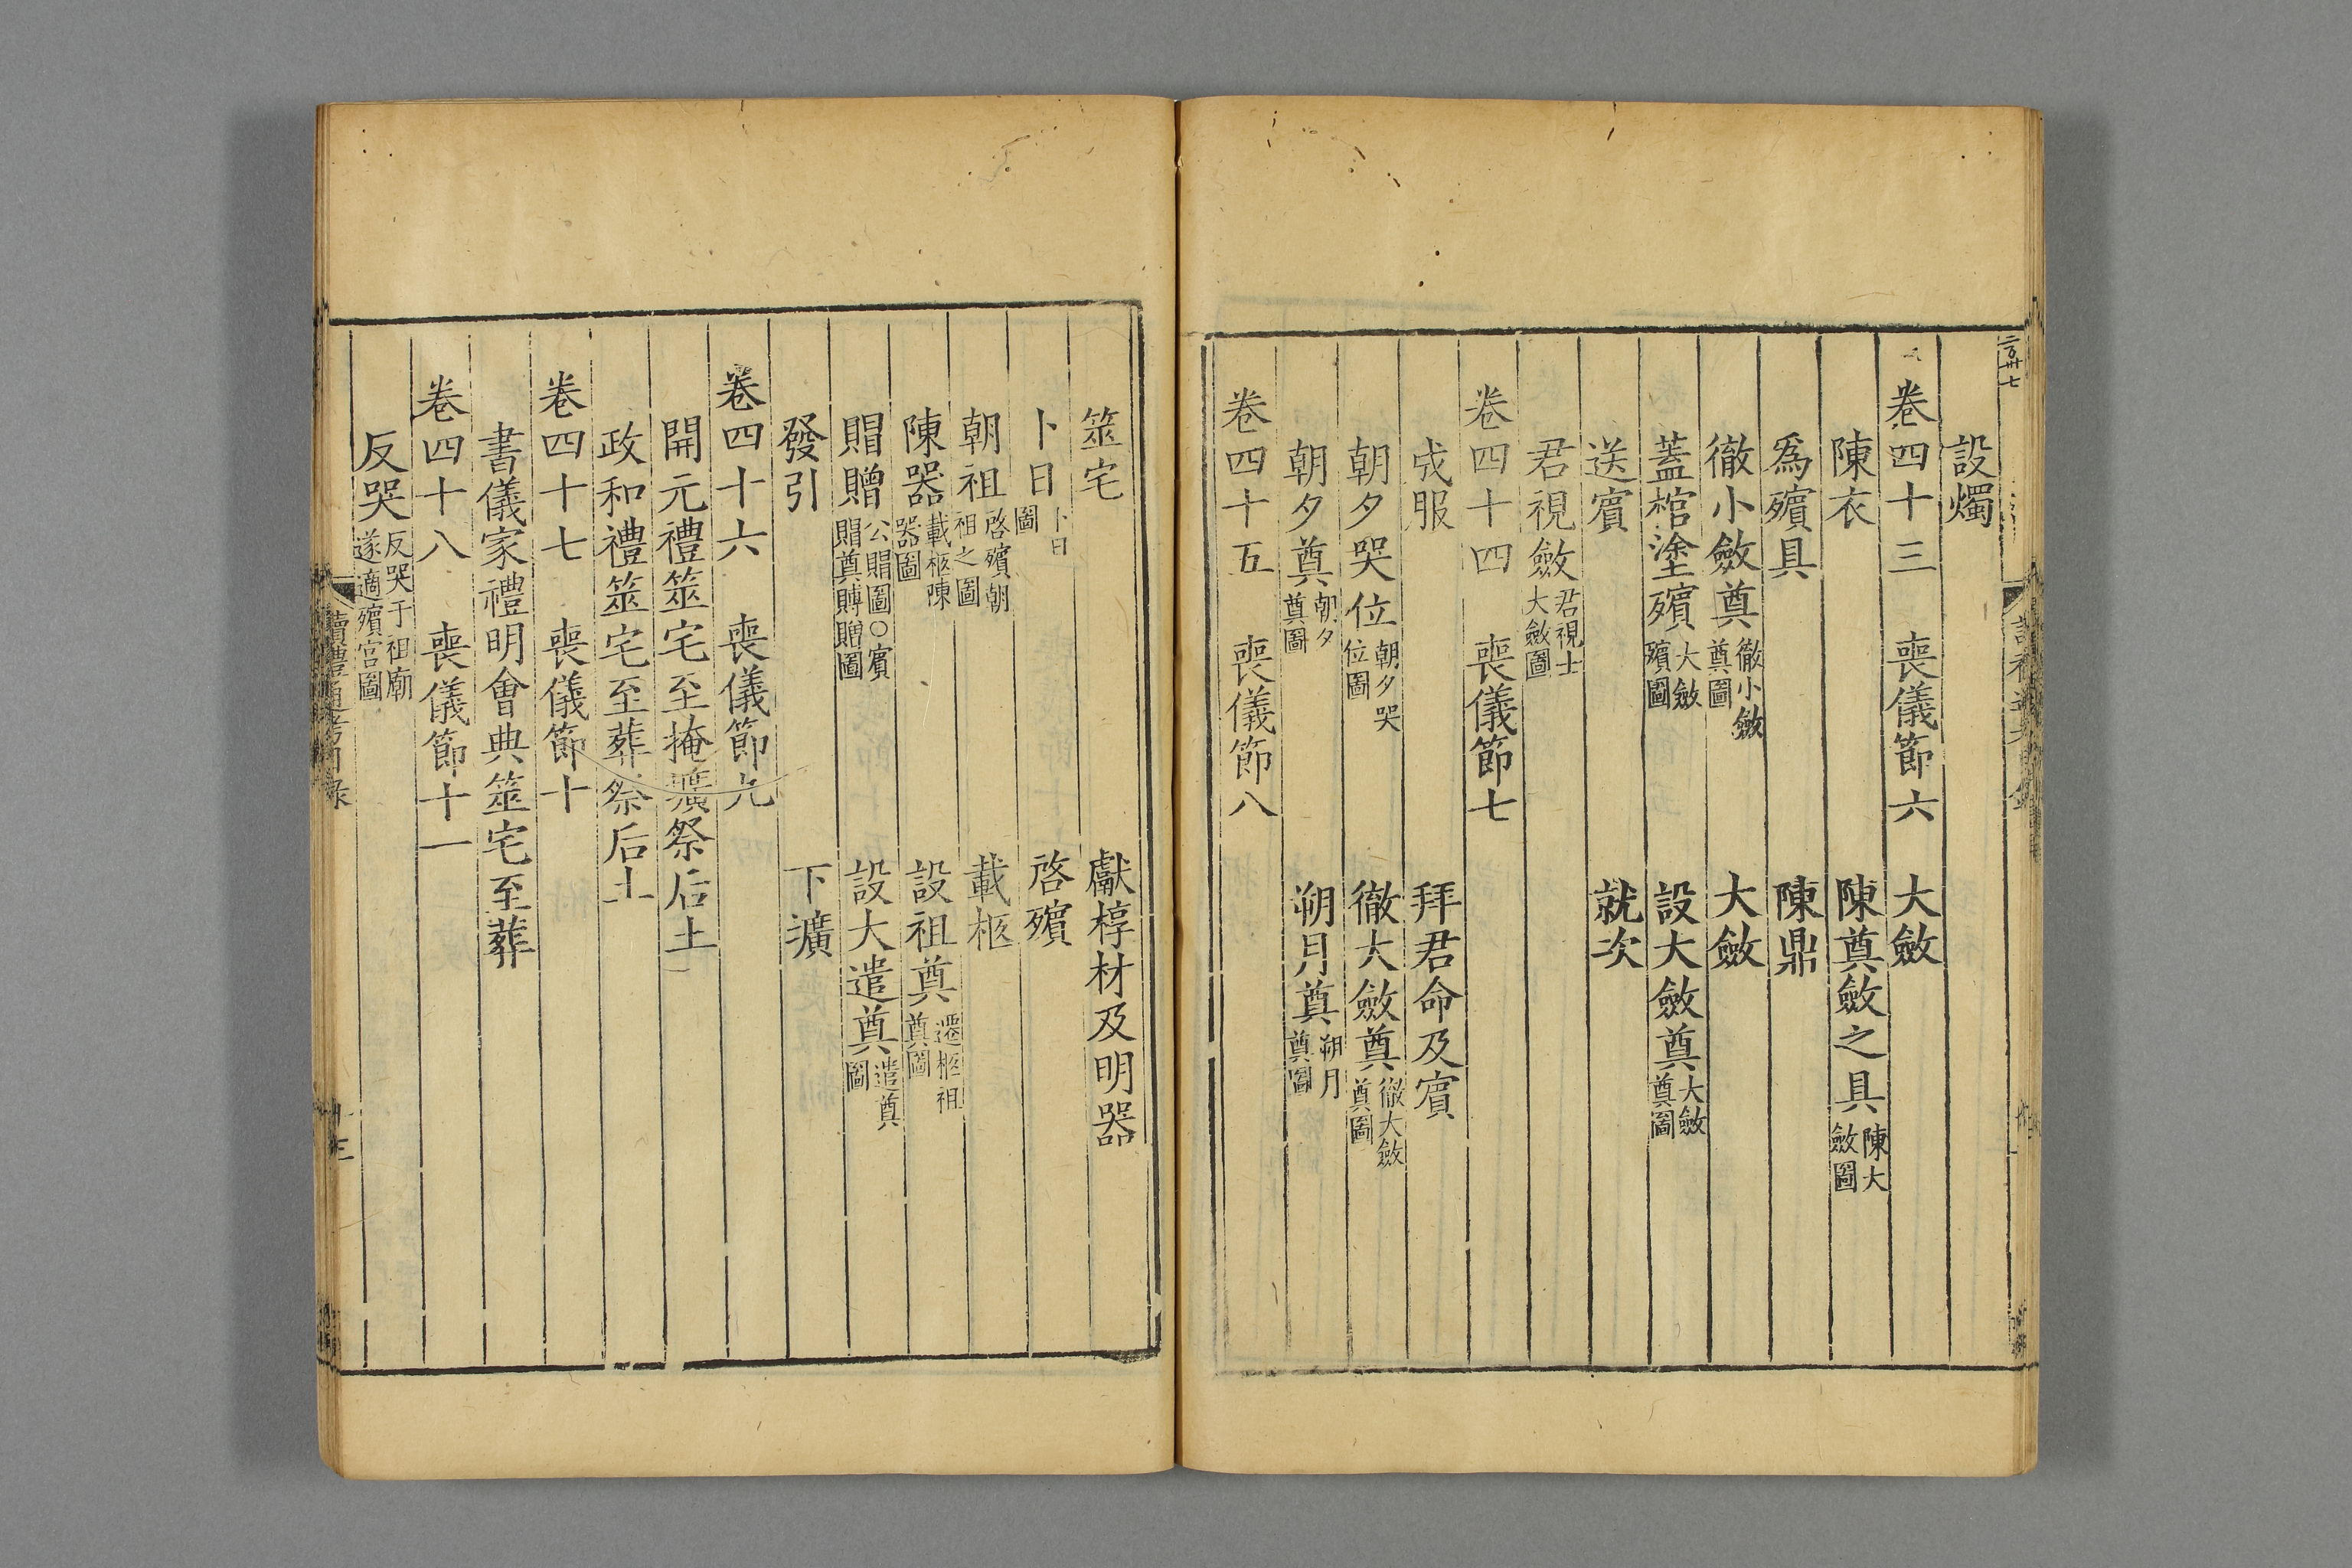 設燭
卷四十三　喪儀節六
大斂
陳衣　陳奠斂之具陳大斂圖
爲殯具　陳鼎
徹小斂奠徹小斂奠圖　大斂
蓋棺塗殯大斂殯圖　設大斂奠大斂奠圖
送賓　就次
君視斂君視士大斂圖
卷四十四　喪儀節七
成服　拜君命及賓
朝夕哭位朝夕哭位圖　徹大斂奠徹大斂奠圖
朝夕奠朝夕奠圖　朔月奠朔月奠圖
卷四十五　喪儀節八
筮宅　獻椁材及明器
卜日卜日圖　啓殯
朝祖啓殯朝祖之圖　載柩
陳器載柩陳器圖　設祖奠遷柩祖奠圖
賵贈公賵圖○賓賵奠賻贈圖　設大遣奠遣奠圖
發引　下壙
卷四十六　喪儀節九
開元禮筮宅至掩壙祭后土
政和禮筮宅至葬祭后土
卷四十七　喪儀節十
書儀家禮明會典筮宅至葬
卷四十八　喪儀節十一
反哭反哭于祖廟遂適殯宮圖
讀禮通考目錄